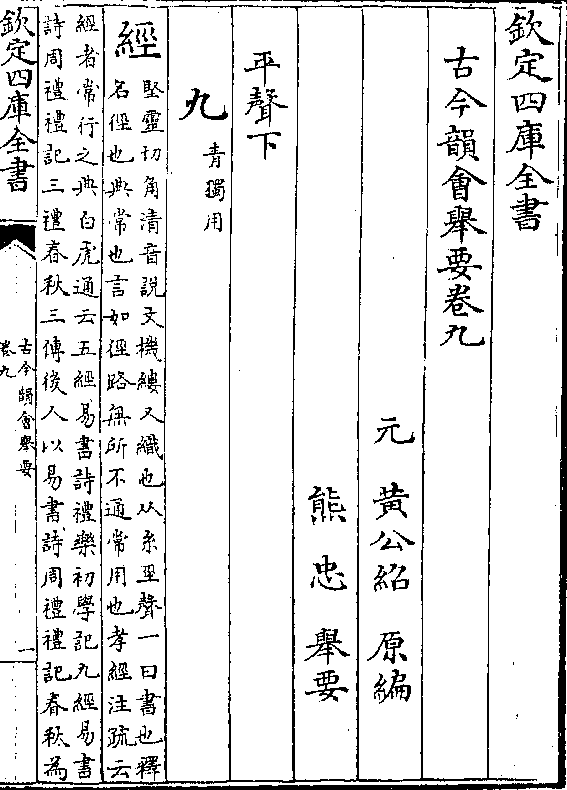 欽定四庫全書
古今韻會舉要卷九
元 黃公紹 原編
熊忠 舉要
平聲下
九 青獨用
經 堅靈切角清音説文機縷又織也从糸巠聲一曰書也釋
名徑也典常也言如徑路無所不通常用也孝經注疏云
經者常行之典白虎通云五經易書詩禮樂初學記九經易書
詩周禮禮記三禮春秋三傳後人以易書詩周禮禮記春秋為
欽定四庫全書
古今韻會舉要
卷九
一